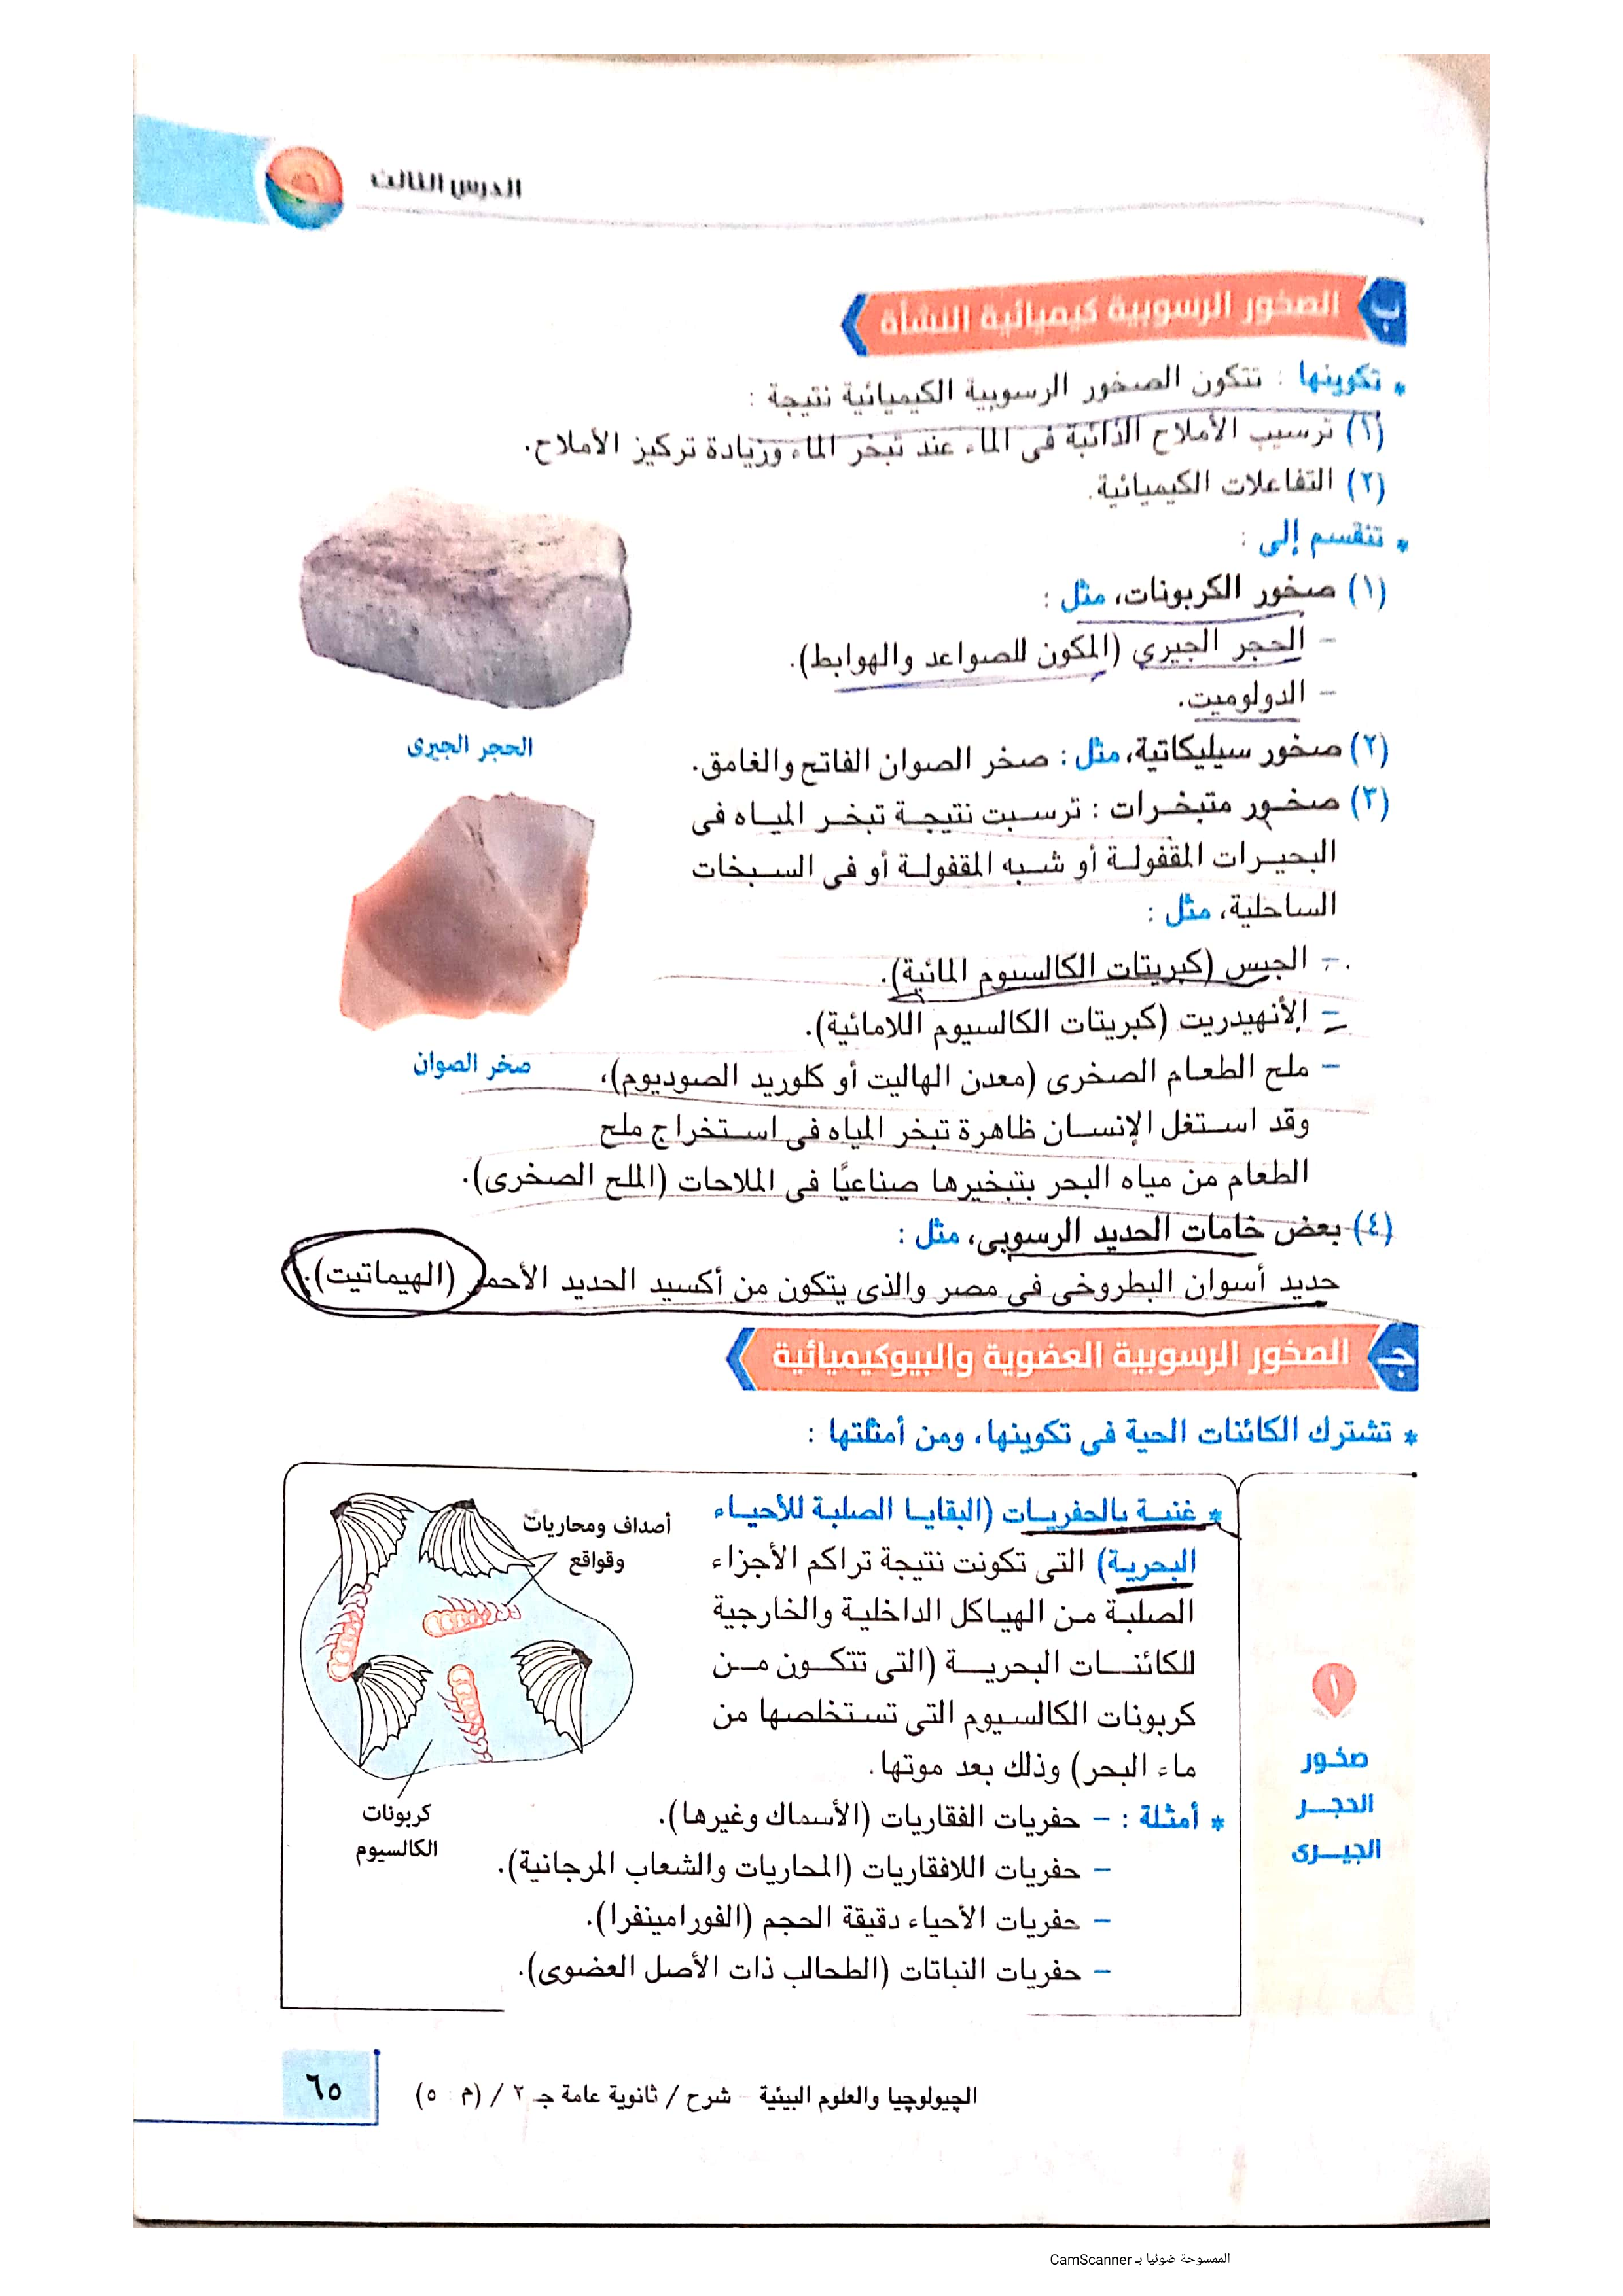 الدرس الثالث
ب الصخور الرسوبية كيميائية النشأة
* تكوينها : تتكون الصخور الرسوبية الكيميائية نتيجة :
(١) ترسيب الأملاح الذائبة فى الماء عند تبخر الماء وزيادة تركيز الأملاح.
(٢) التفاعلات الكيميائية.
* تنقسم إلى :
(١) صخور الكربونات، مثل :
– الحجر الجيري (المكون للصواعد والهوابط).
– الدولوميت.
الحجر الجيرى
(٢) صخور سيليكاتية، مثل : صخر الصوان الفاتح والغامق.
(٣) صخور متبخرات : ترسبت نتيجة تبخر المياه فى
البحيرات المقفولة أو شبه المقفولة أو فى السبخات
الساحلية، مثل :
– الجبس (كبريتات الكالسيوم المائية).
– الأنهيدريت (كبريتات الكالسيوم اللامائية).
صخر الصوان
– ملح الطعام الصخرى (معدن الهاليت أو كلوريد الصوديوم)،
وقد استغل الإنسان ظاهرة تبخر المياه فى استخراج ملح
الطعام من مياه البحر بتبخيرها صناعيًا فى الملاحات (الملح الصخرى).
(٤) بعض خامات الحديد الرسوبى، مثل :
حديد أسوان البطروخى فى مصر والذى يتكون من أكسيد الحديد الأحمر (الهيماتيت).
جـ الصخور الرسوبية العضوية والبيوكيميائية
* تشترك الكائنات الحية فى تكوينها، ومن أمثلتها :
١
صخور
الحجر
الجيرى
* غنية بالحفريات (البقايا الصلبة للأحياء
البحرية) التى تكونت نتيجة تراكم الأجزاء
الصلبة من الهياكل الداخلية والخارجية
للكائنات البحرية (التى تتكون من
كربونات الكالسيوم التى تستخلصها من
ماء البحر) وذلك بعد موتها.
أصداف ومحاريات
وقواقع
كربونات
الكالسيوم
* أمثلة : – حفريات الفقاريات (الأسماك وغيرها).
– حفريات اللافقاريات (المحاريات والشعاب المرجانية).
– حفريات الأحياء دقيقة الحجم (الفورامينفرا).
– حفريات النباتات (الطحالب ذات الأصل العضوى).
الچيولوچيا والعلوم البيئية – شرح / ثانوية عامة جـ ٢ / (م ٥)
٦٥
الممسوحة ضوئيا بـ CamScanner